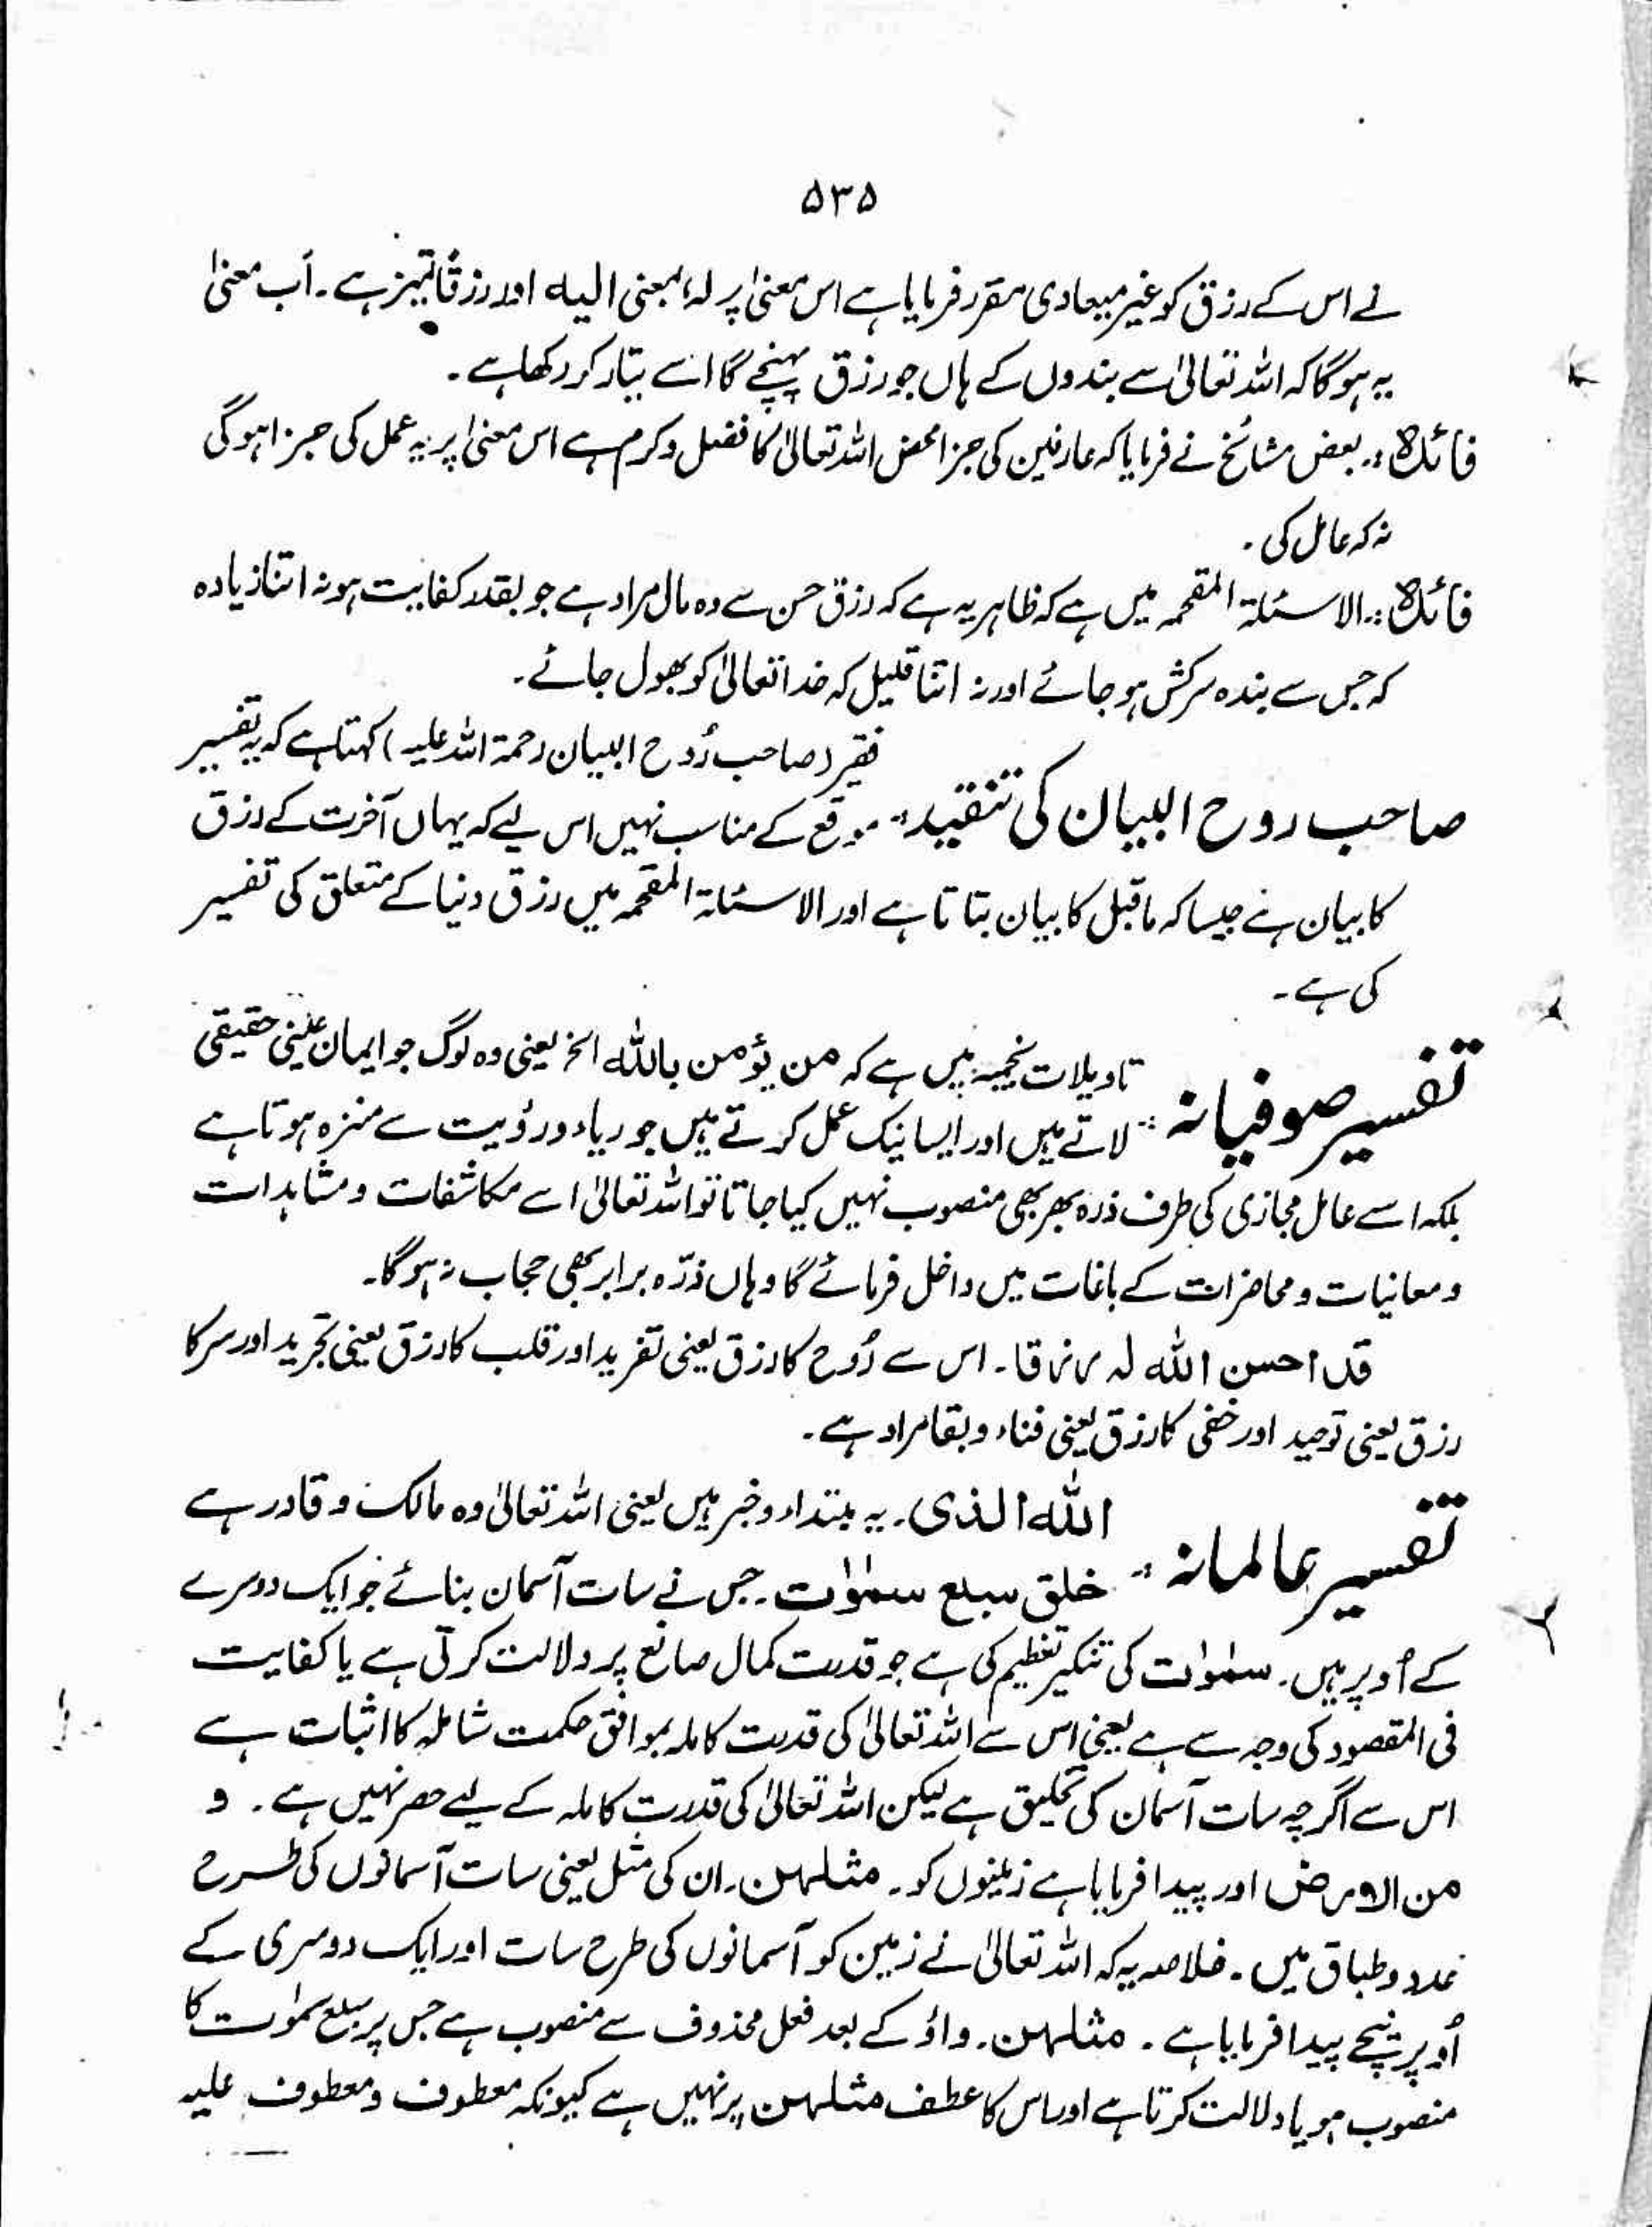 ۵۳۵
نے اس کے رزق کو غیر میعادی مقرر فرمایا ہے اس معنیٰ پر لہ، بمعنی الیہ اور رزقًا تمیز ہے ۔ اَب معنیٰ
یہ ہوگا کہ اللہ تعالیٰ سے بندوں کے ہاں جو رزق پہنچے گا اسے تیار کر رکھا ہے ۔
فائدہ :۔ بعض مشائخ نے فرمایا کہ عارفین کی جزا محض اللہ تعالیٰ کا فضل و کرم ہے اس معنیٰ پر یہ عمل کی جزا ہوگی
نہ کہ عامل کی ۔
فائدہ :۔ الاسئلۃ المقحمہ میں ہے کہ ظاہر یہ ہے کہ رزق حسن سے وہ مال مراد ہے جو بقدر کفایت ہو نہ اتنا زیادہ
کہ جس سے بندہ سرکش ہو جائے اور نہ اتنا قلیل کہ خدا تعالیٰ کو بھول جائے ۔
فقیر (صاحب رُوح البیان رحمۃ اللہ علیہ) کہتا ہے کہ یہ تفسیر
صاحب روح البیان کی تنقید :۔ موقع کے مناسب نہیں اس لیے کہ یہاں آخرت کے رزق
کا بیان ہے جیسا کہ ماقبل کا بیان بتاتا ہے اور الاسئلۃ المقحمہ میں رزق دنیا کے متعلق کی تفسیر
کی ہے ۔
تاویلات نجمیہ میں ہے کہ من یؤمن باللہ الخ یعنی وہ لوگ جو ایمان عینی حقیقی
تفسیر صوفیانہ :۔ لاتے ہیں اور ایسا نیک عمل کرتے ہیں جو ریاء و رؤیت سے منزہ ہوتا ہے
بلکہ اسے عامل مجازی کی طرف ذرہ بھر بھی منصوب نہیں کیا جاتا تو اللہ تعالیٰ اسے مکاشفات و مشاہدات
و معانیات و محاضرات کے باغات میں داخل فرمائے گا وہاں ذرّہ برابر بھی حجاب نہ ہوگا ۔
قد احسن اللہ لہ رزقا ۔ اس سے رُوح کا رزق یعنی تفرید اور قلب کا رزق یعنی تجرید اور سر کا
رزق یعنی توحید اور خفی کا رزق یعنی فناء و بقا مراد ہے ۔
اللہ الذی ۔ یہ مبتداء و خبر ہیں یعنی اللہ تعالیٰ وہ مالک و قادر ہے
تفسیر عالمانہ :۔ خلق سبع سمٰوٰت ۔ جس نے سات آسمان بنائے جو ایک دوسرے
کے اُوپر ہیں ۔ سمٰوٰت کی تنکیر تعظیم کی ہے جو قدرت کمال صانع پر دلالت کرتی ہے یا کفایت
فی المقصود کی وجہ سے ہے یعنی اس سے اللہ تعالیٰ کی قدرت کاملہ بموافق حکمت شاملہ کا اثبات ہے
اس سے اگرچہ سات آسمان کی تخلیق ہے لیکن اللہ تعالیٰ کی قدرت کاملہ کے لیے حصر نہیں ہے ۔ و
من الارض اور پیدا فرمایا ہے زمینوں کو ۔ مثلہن ۔ ان کی مثل یعنی سات آسمانوں کی طرح
عدد و طباق میں ۔ خلاصہ یہ کہ اللہ تعالیٰ نے زمین کو آسمانوں کی طرح سات اور ایک دوسری کے
اُوپر نیچے پیدا فرمایا ہے ۔ مثلہن ۔ واؤ کے بعد فعل محذوف سے منصوب ہے جس پر سبع سمٰوٰت کا
منصوب ہو یا دلالت کرتا ہے اور اس کا عطف مثلہن پر نہیں ہے کیونکہ معطوف و معطوف علیہ